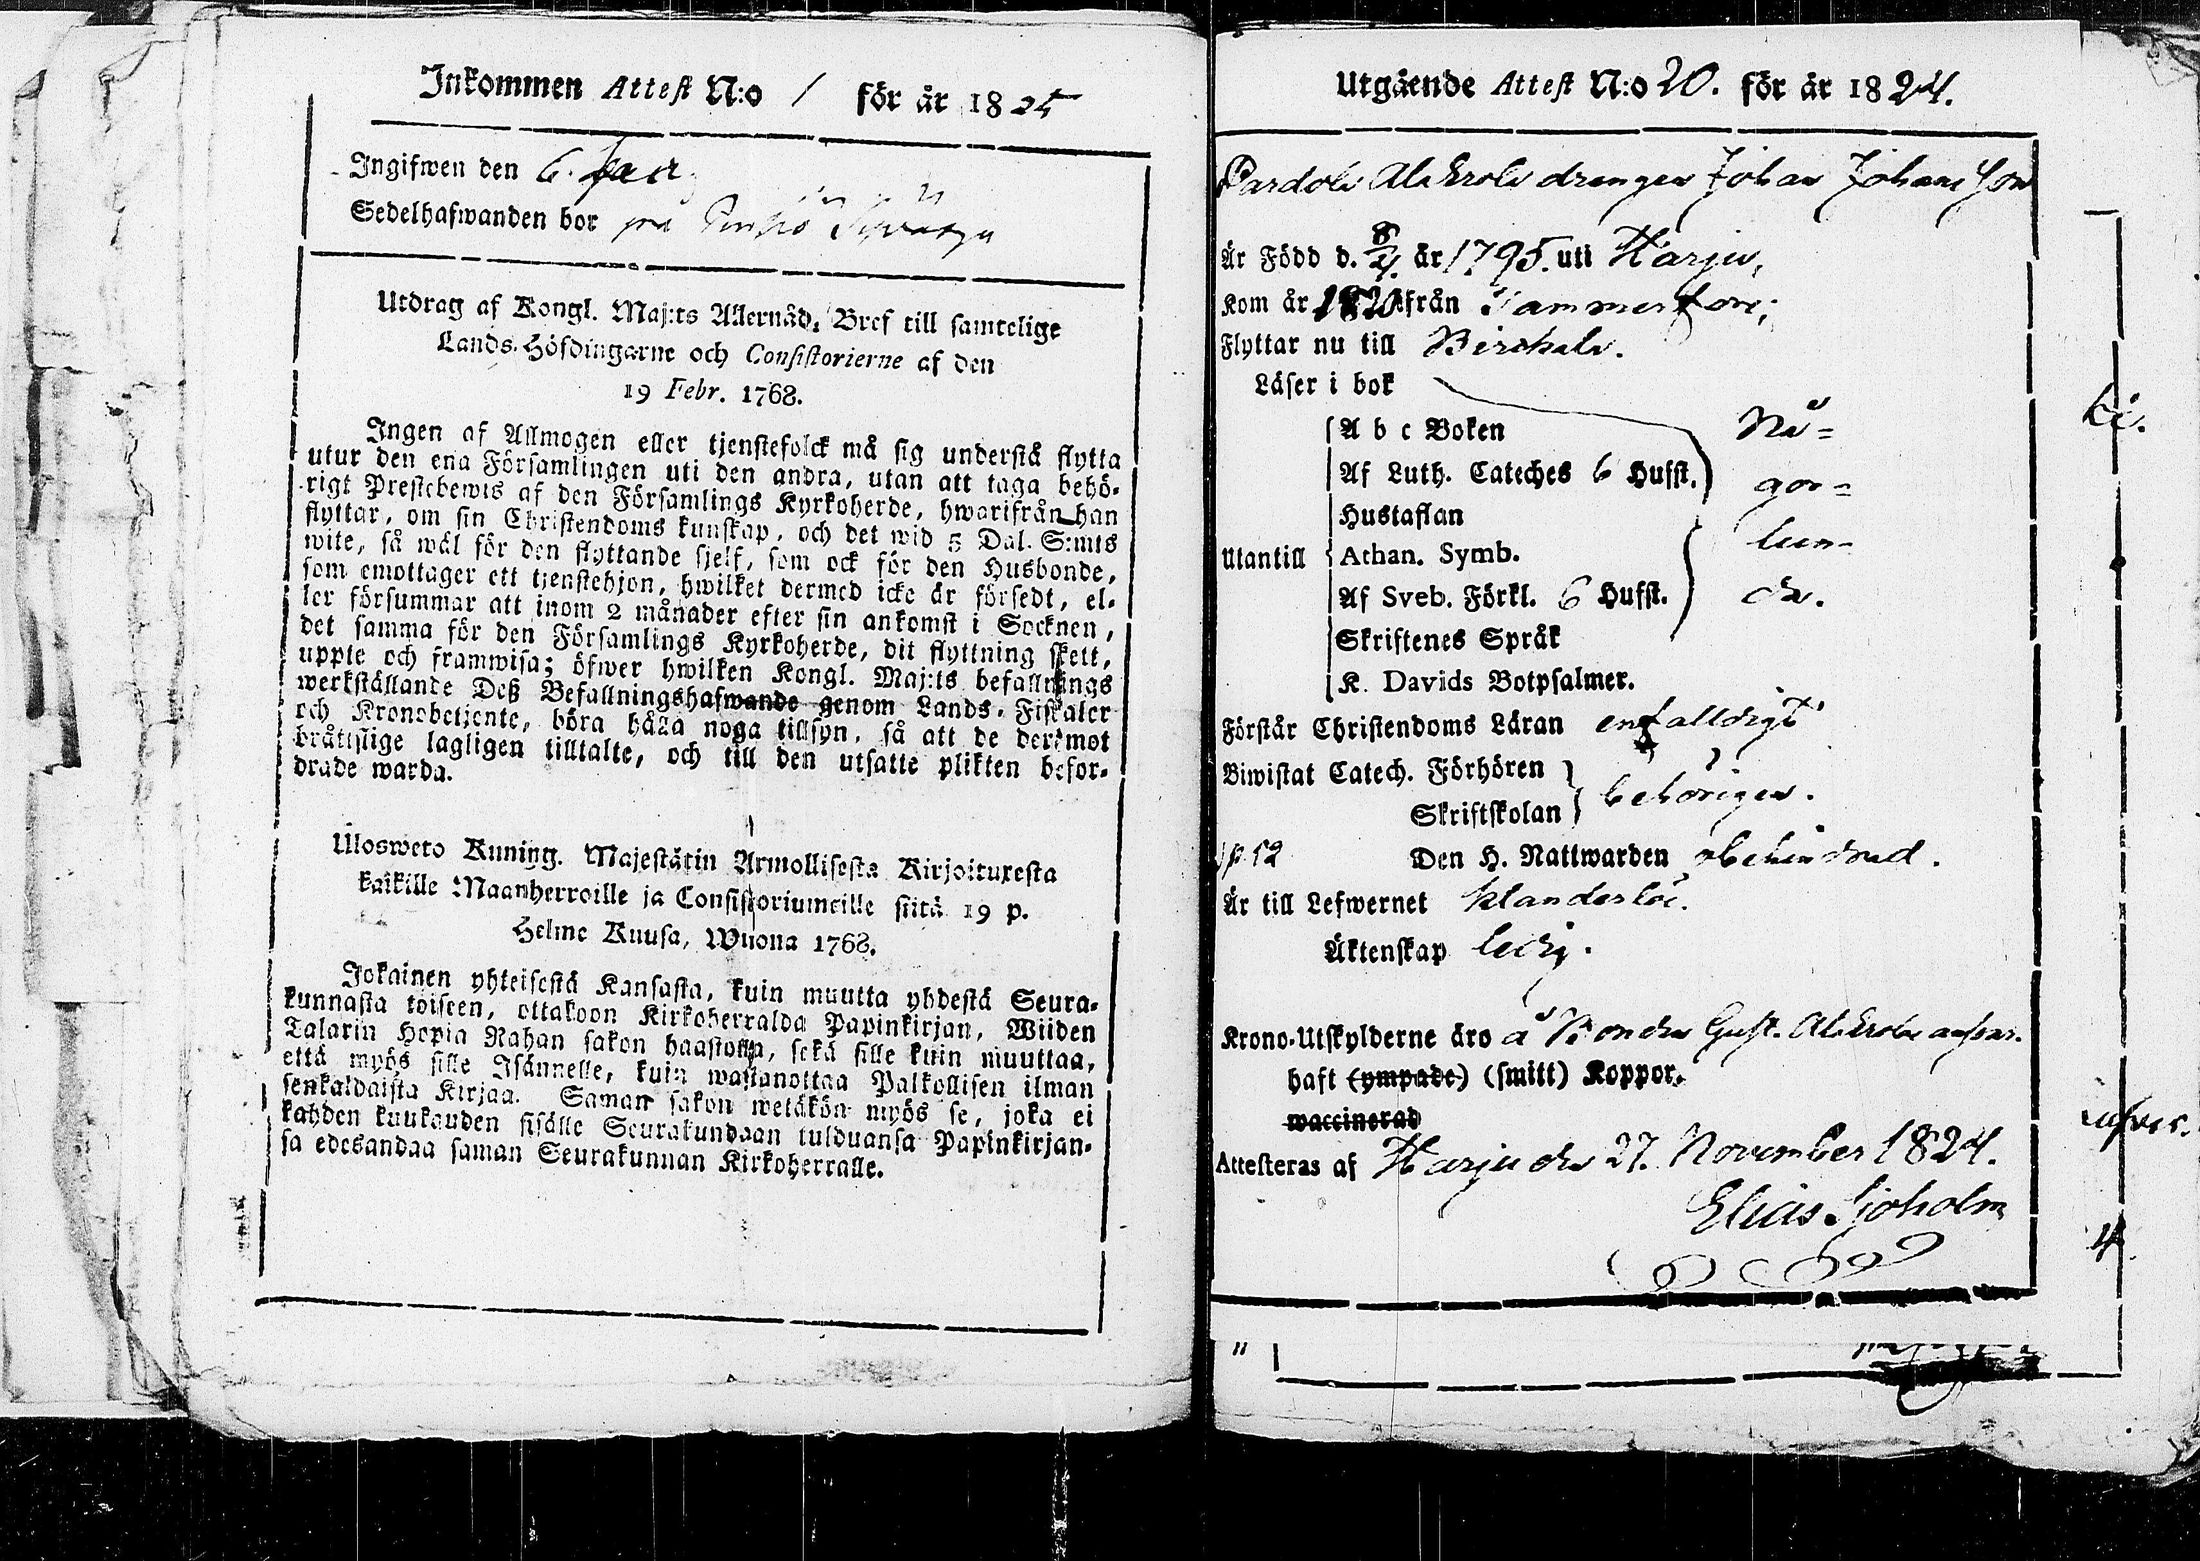 Inkommen Attest N:o 1 för år 1825
Ingifwen den 6. Jan.
Sedelhafwanden bor på
Utdrag af Kongl. Maj:ts Allernåd. Bref till samtelige
Lands-Höfdingarne och Consistorierne af den
19 Febr. 1768.
Ingen af Allmogen eller tjenstefolck må sig understå flytta
utur den ena Församlingen uti den andra, utan att taga behö-
rigt Prestebewis af den Församlings Kyrkoherde, hwarifrån han
flyttar, om sin Christendoms kunskap, och det wid 5 Dal. S:mts
wite, så wäl för den flyttande sjelf, som ock för den Husbonde,
som emottager ett tjenstehjon, hwilket dermed icke är försedt, el-
ler försummar att inom 2 månader efter sin ankomst i Socknen,
det samma för den Församlings Kyrkoherde, dit flyttning skett,
uppte och framwisa; öfwer hwilken Kongl. Maj:ts befallnings
werkställande Deß Befallningshafwande genom Lands-Fiskaler
och Kronobetjente, böra hålla noga tillsyn, så att de deremot
bråttslige lagligen tilltalte, och till den utsatte plikten befor-
drade warda.
Ulosweto Kuning. Majestätin Armollisesta Kirjoituxesta
kaikille Maanherroille ja Consistoriumeille siitä 19 p.
Helme Kuusa, Wuona 1768.
Jokainen yhteisestä Kansasta, kuin muutta yhdestä Seura-
kunnasta toiseen, ottakoon Kirkoherralda Papinkirjan, Wiiden
Talarin Hopia Rahan sakon haastolla, sekä sille kuin muuttaa,
että myös sille Isännelle, kuin wastanottaa Palkollisen ilman
senkaldaista Kirjaa. Saman sakon wetäkön myös se, joka ei
kahden kuukauden sisälle Seurakundaan tulduansa Papinkirjan-
sa edesandaa saman Seurakunnan Kirkoherralle.
Utgående Attest N:o 20. för år 1824.
Pardola Alakrola drengen Johan Johansson
Är Född d. 8/4. år 1795. uti Harju,
Kom år 1820 från Tammerfors;
Flyttar nu till Birchala.
Läser i bok
A b c Boken Nå=
Af Luth. Cateches 6 Hufst. gor=
Hustaflan
Utantill Athan. Symb. lun-
Af Sveb. Förkl. 6 Hufst. da.
Skriftenes Språk
K. Davids Botpsalmer.
Förstår Christendoms Läran enfalldigt
Biwistat Catech. Förhören behörigen.
Skriftskolan
p. 52 Den H. Nattwarden obehindrad.
Är till Lefwernet klanderlös.
Äktenskap ledig.
Krono-Utskylderne äro å Bonden Gust. Alakrola ansvar.
haft (ympade) (smitt) Koppor.
waccinerad
Attesteras af Harju den 27. November 1824.
Elias Sjoholm